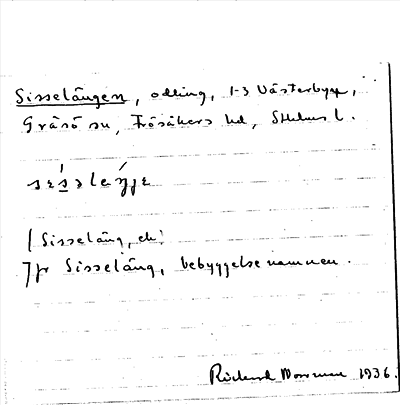 Sisselängen, odling, 1-3 Västerbyn,
Gräsö sn, Frösåkers hd, Sthlms l.
(Sisseläng, ek)
Jfr Sisseläng, bebyggelsenamnen.
Rickard 1936.